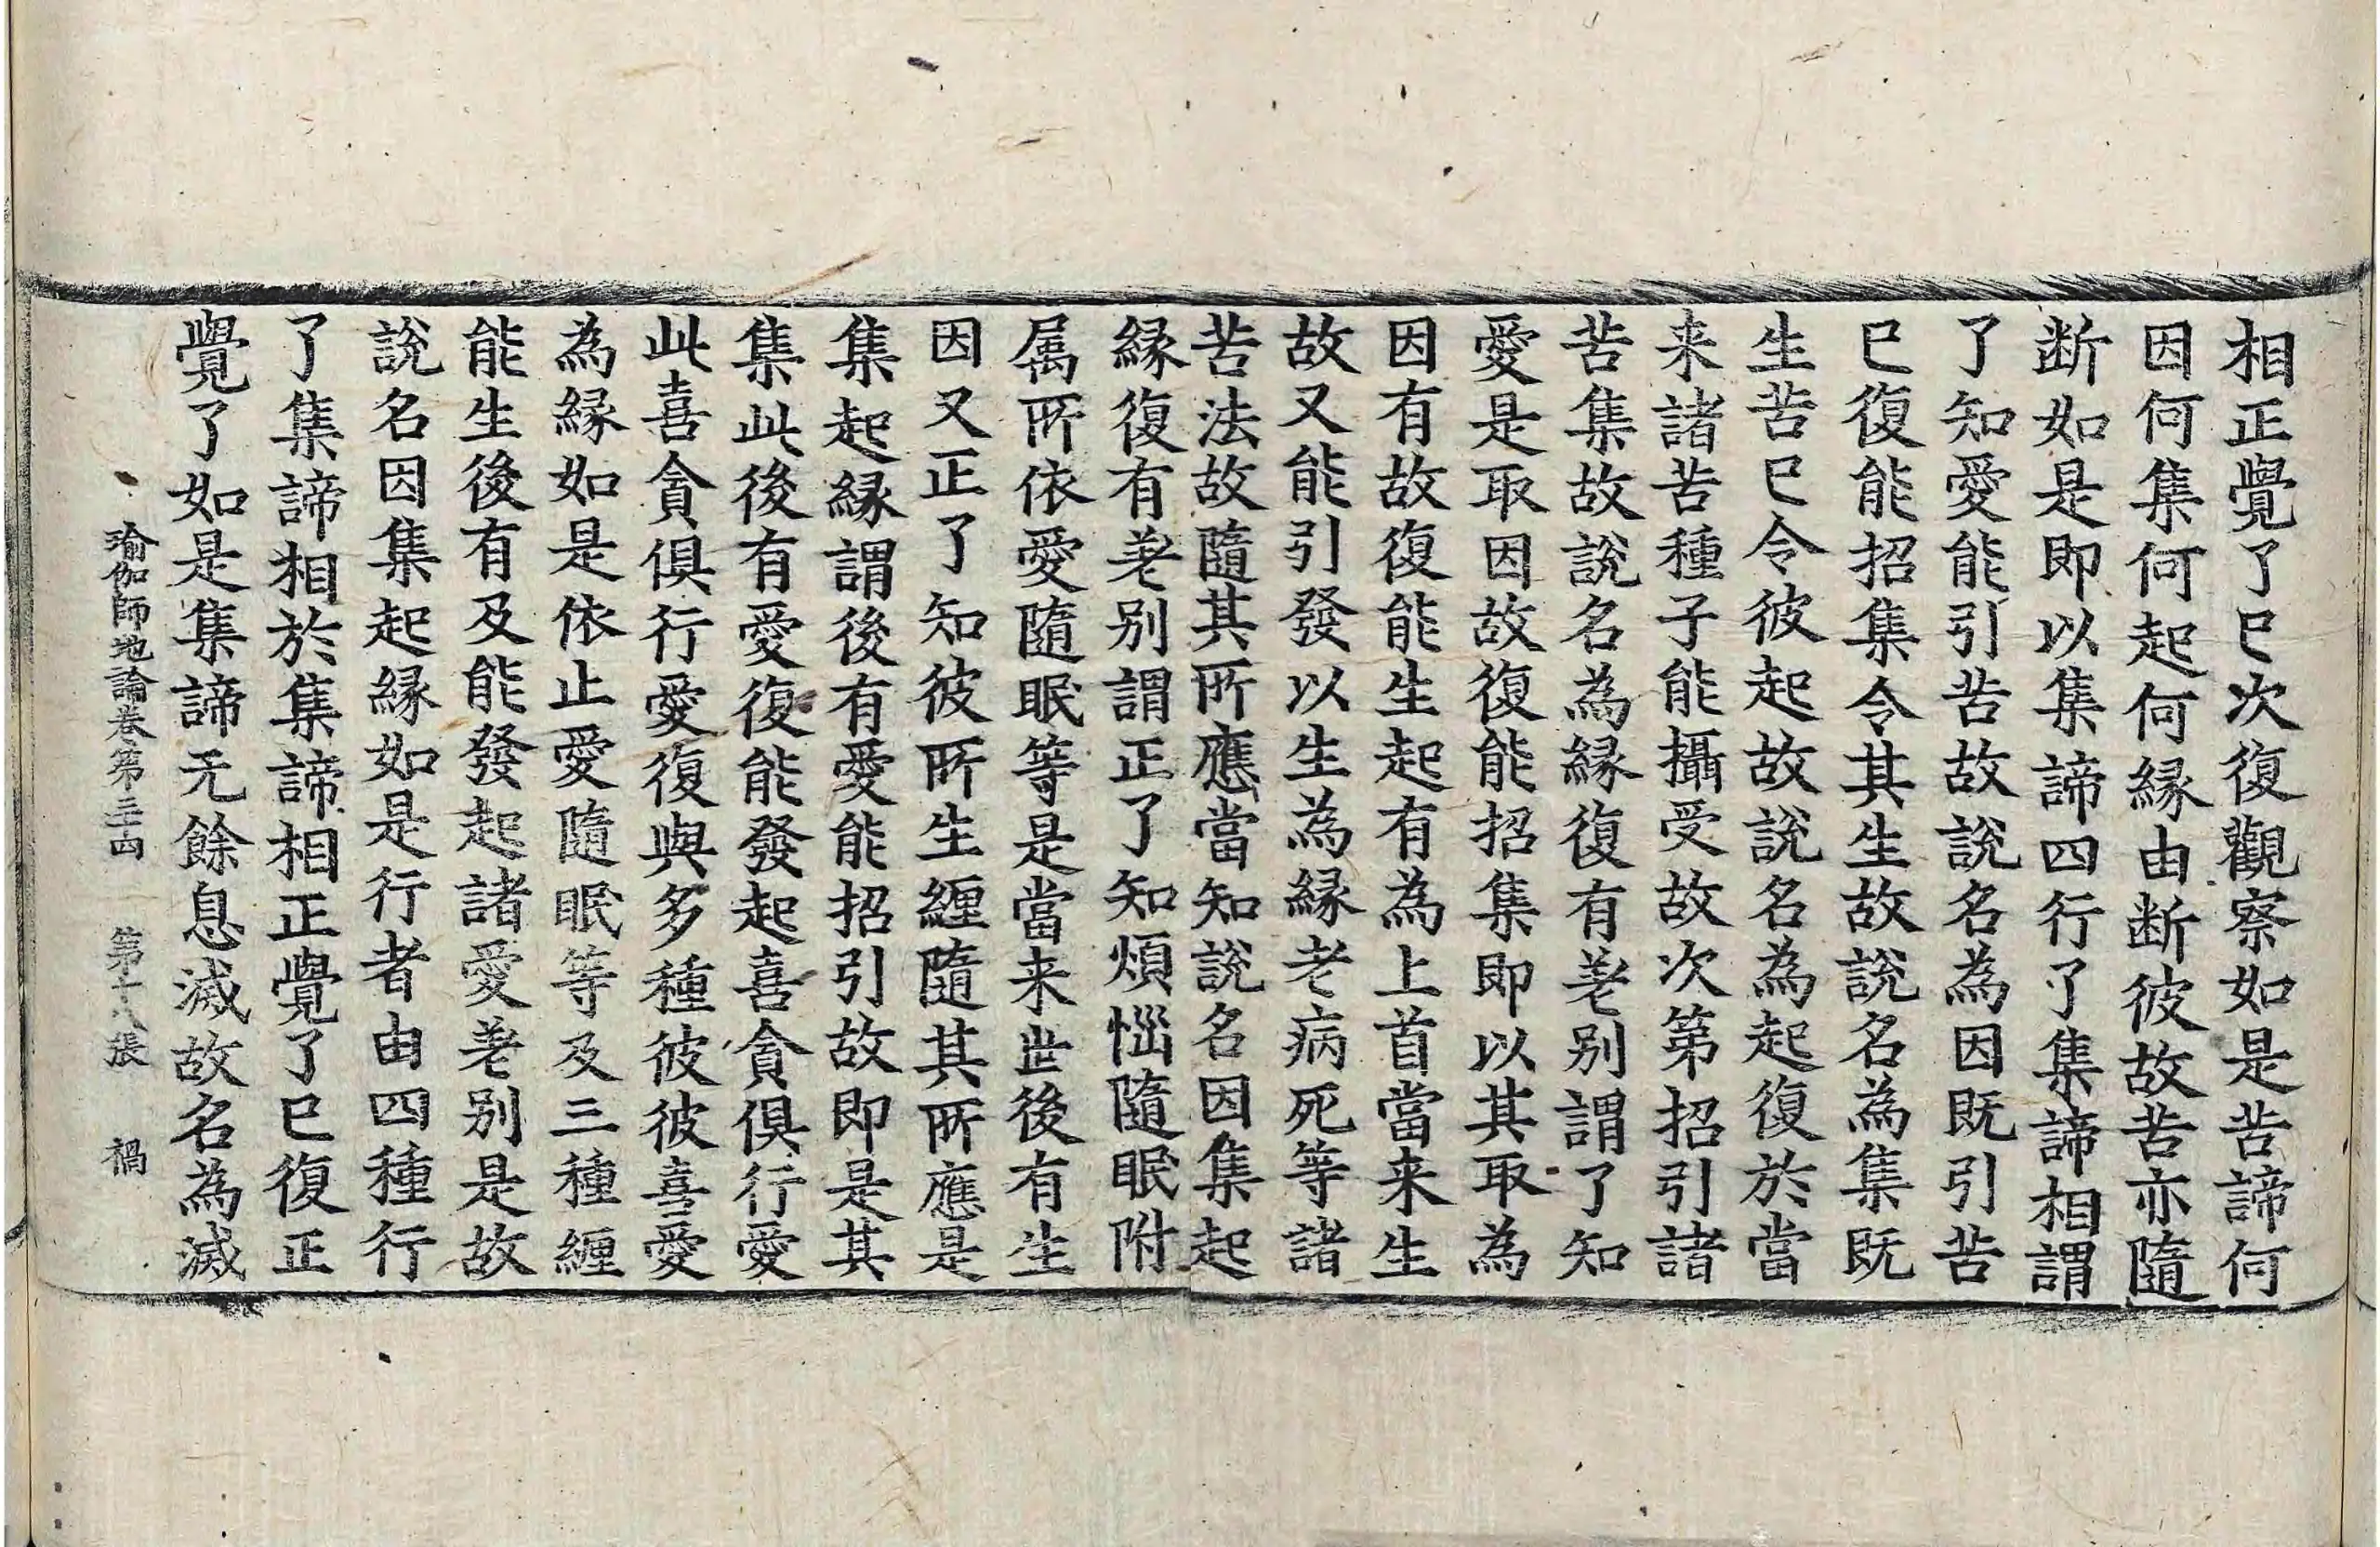 相正覺了已次復觀察如是苦諦何
因何集何起何縁由断彼故苦亦隨
断如是即以集諦四行了集諦相謂
了知愛能引苦故說名為因既引苦
已復能招集令其生故說名為集既
生苦已令彼起故說名為起復於當
来諸苦種子能攝受故次第招引諸
苦集故說名為縁復有差別謂了知
愛是取因故復能招集即以其取為
因有故復能生起有為上首當来生
故又能引發以生為縁老病死等諸
苦法故隨其所應當知說名因集起
縁復有差别謂正了知煩惱隨眠附
属所依愛隨眠等是當来世後有生
因又正了知彼所生纏隨其所應是
集起縁謂後有愛能招引故即是其
集此後有愛復能發起喜貪俱行愛
此喜貪俱行愛復與多種彼彼喜愛
為縁如是依止愛隨眠等及三種纏
能生後有及能發起諸愛差别是故
說名因集起縁如是行者由四種行
了集諦相於集諦相正覺了已復正
覺了如是集諦无餘息滅故名為滅
瑜伽師地論卷第三十四 第十八張 禍